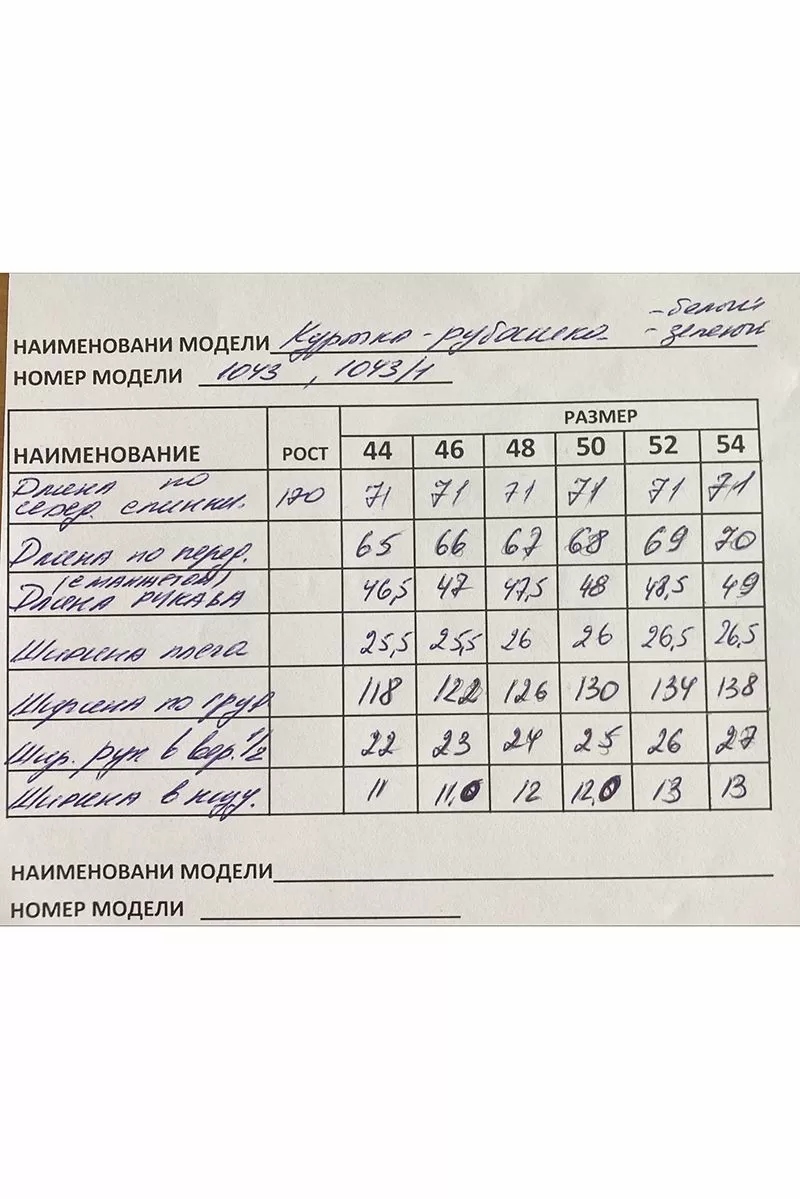 - белый
НАИМЕНОВАНИ МОДЕЛИ Куртка-рубашка - зеленый
НОМЕР МОДЕЛИ 1043, 1043/1
РАЗМЕР
НАИМЕНОВАНИЕ РОСТ 44 46 48 50 52 54
Длина по
серед. спинки. 170 71 71 71 71 71 71
Длина по перед. 65 66 67 68 69 70
(с манжетой)
Длина рукава 46,5 47 47,5 48 48,5 49
Ширина плеча 25,5 25,5 26 26 26,5 26,5
Ширина по груд 118 122 126 130 134 138
Шир. рук в вер. 1/2 22 23 24 25 26 27
Ширина в низу. 11 11,0 12 12,0 13 13
НАИМЕНОВАНИ МОДЕЛИ
НОМЕР МОДЕЛИ